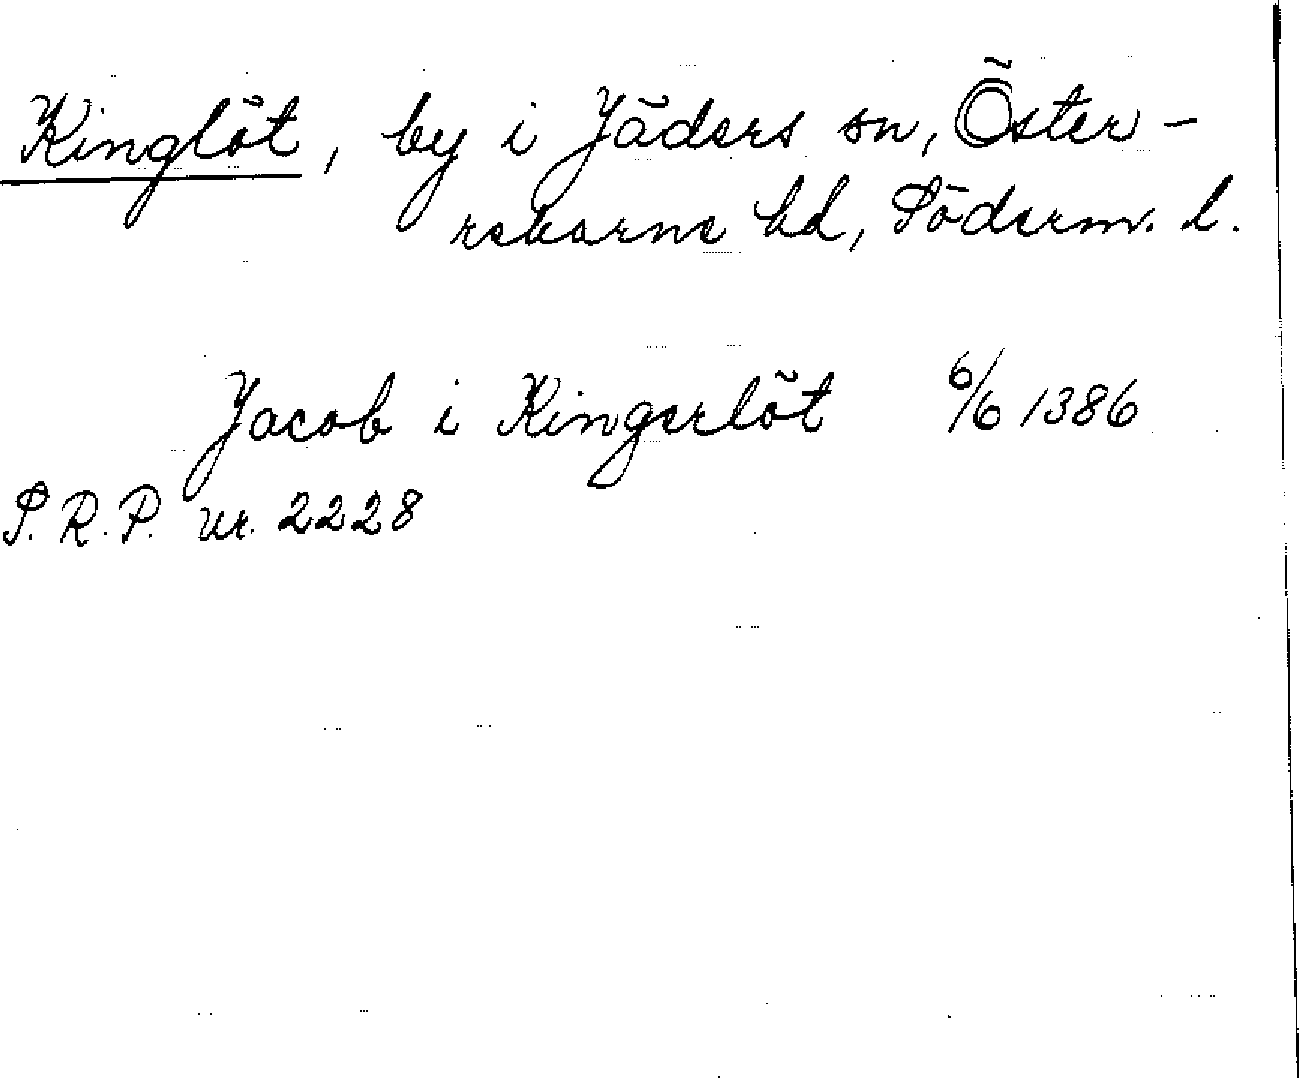 Kinglöt, by i Jäders sn, Öster-
rekarne hd, Söderm. l.
Jacob i Kingerlöt 6/6 1386
S.R.P. nr. 2228